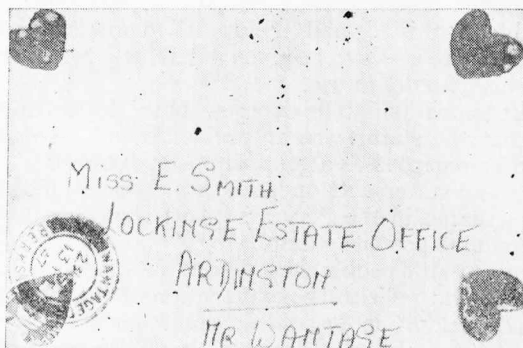 MISS E. SMITH
LOCKINGE ESTATE OFFICE
ARDINGTON
NR WANTAGE
WANTAGE
BERKS